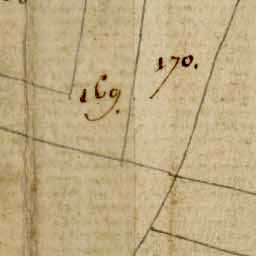 170.
169.